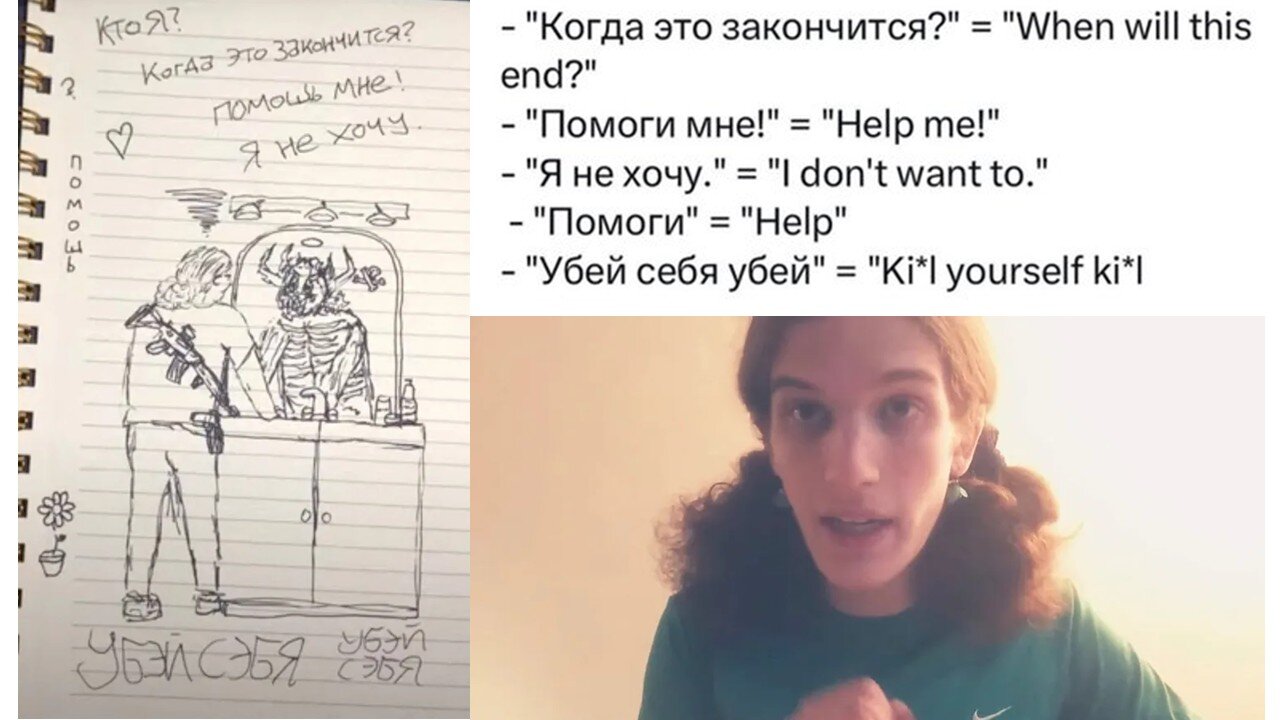 Кто я?
Когда это закончится?
?
помошь мне!
Я не хочу.
помошь
Убэй сэбя
убэй
сэбя
- "Когда это закончится?" = "When will this
end?"
- "Помоги мне!" = "Help me!"
- "Я не хочу." = "I don't want to."
- "Помоги" = "Help"
- "Убей себя убей" = "Ki*l yourself ki*l